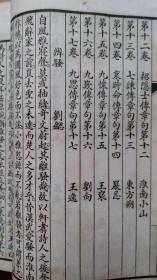 第十二卷 招隱士傳章句第十二 淮南小山
第十三卷 七諫傳章句第十三 東方朔
第十四卷 哀時命傳章句第十四 嚴忌
第十五卷 九懷傳章句第十五 王褒
第十六卷 九歎傳章句第十六 劉向
第十七卷 九思傳章句第十七 王逸
辨騷 劉勰
自風雅寢聲莫或抽緒奇文鬱起其離騷哉故以軒翥詩人之後奮
飛辭家之前豈去聖之未遠而楚人之多才乎昔漢武愛騷而淮南
國風好色而不淫小雅怨誹而不亂